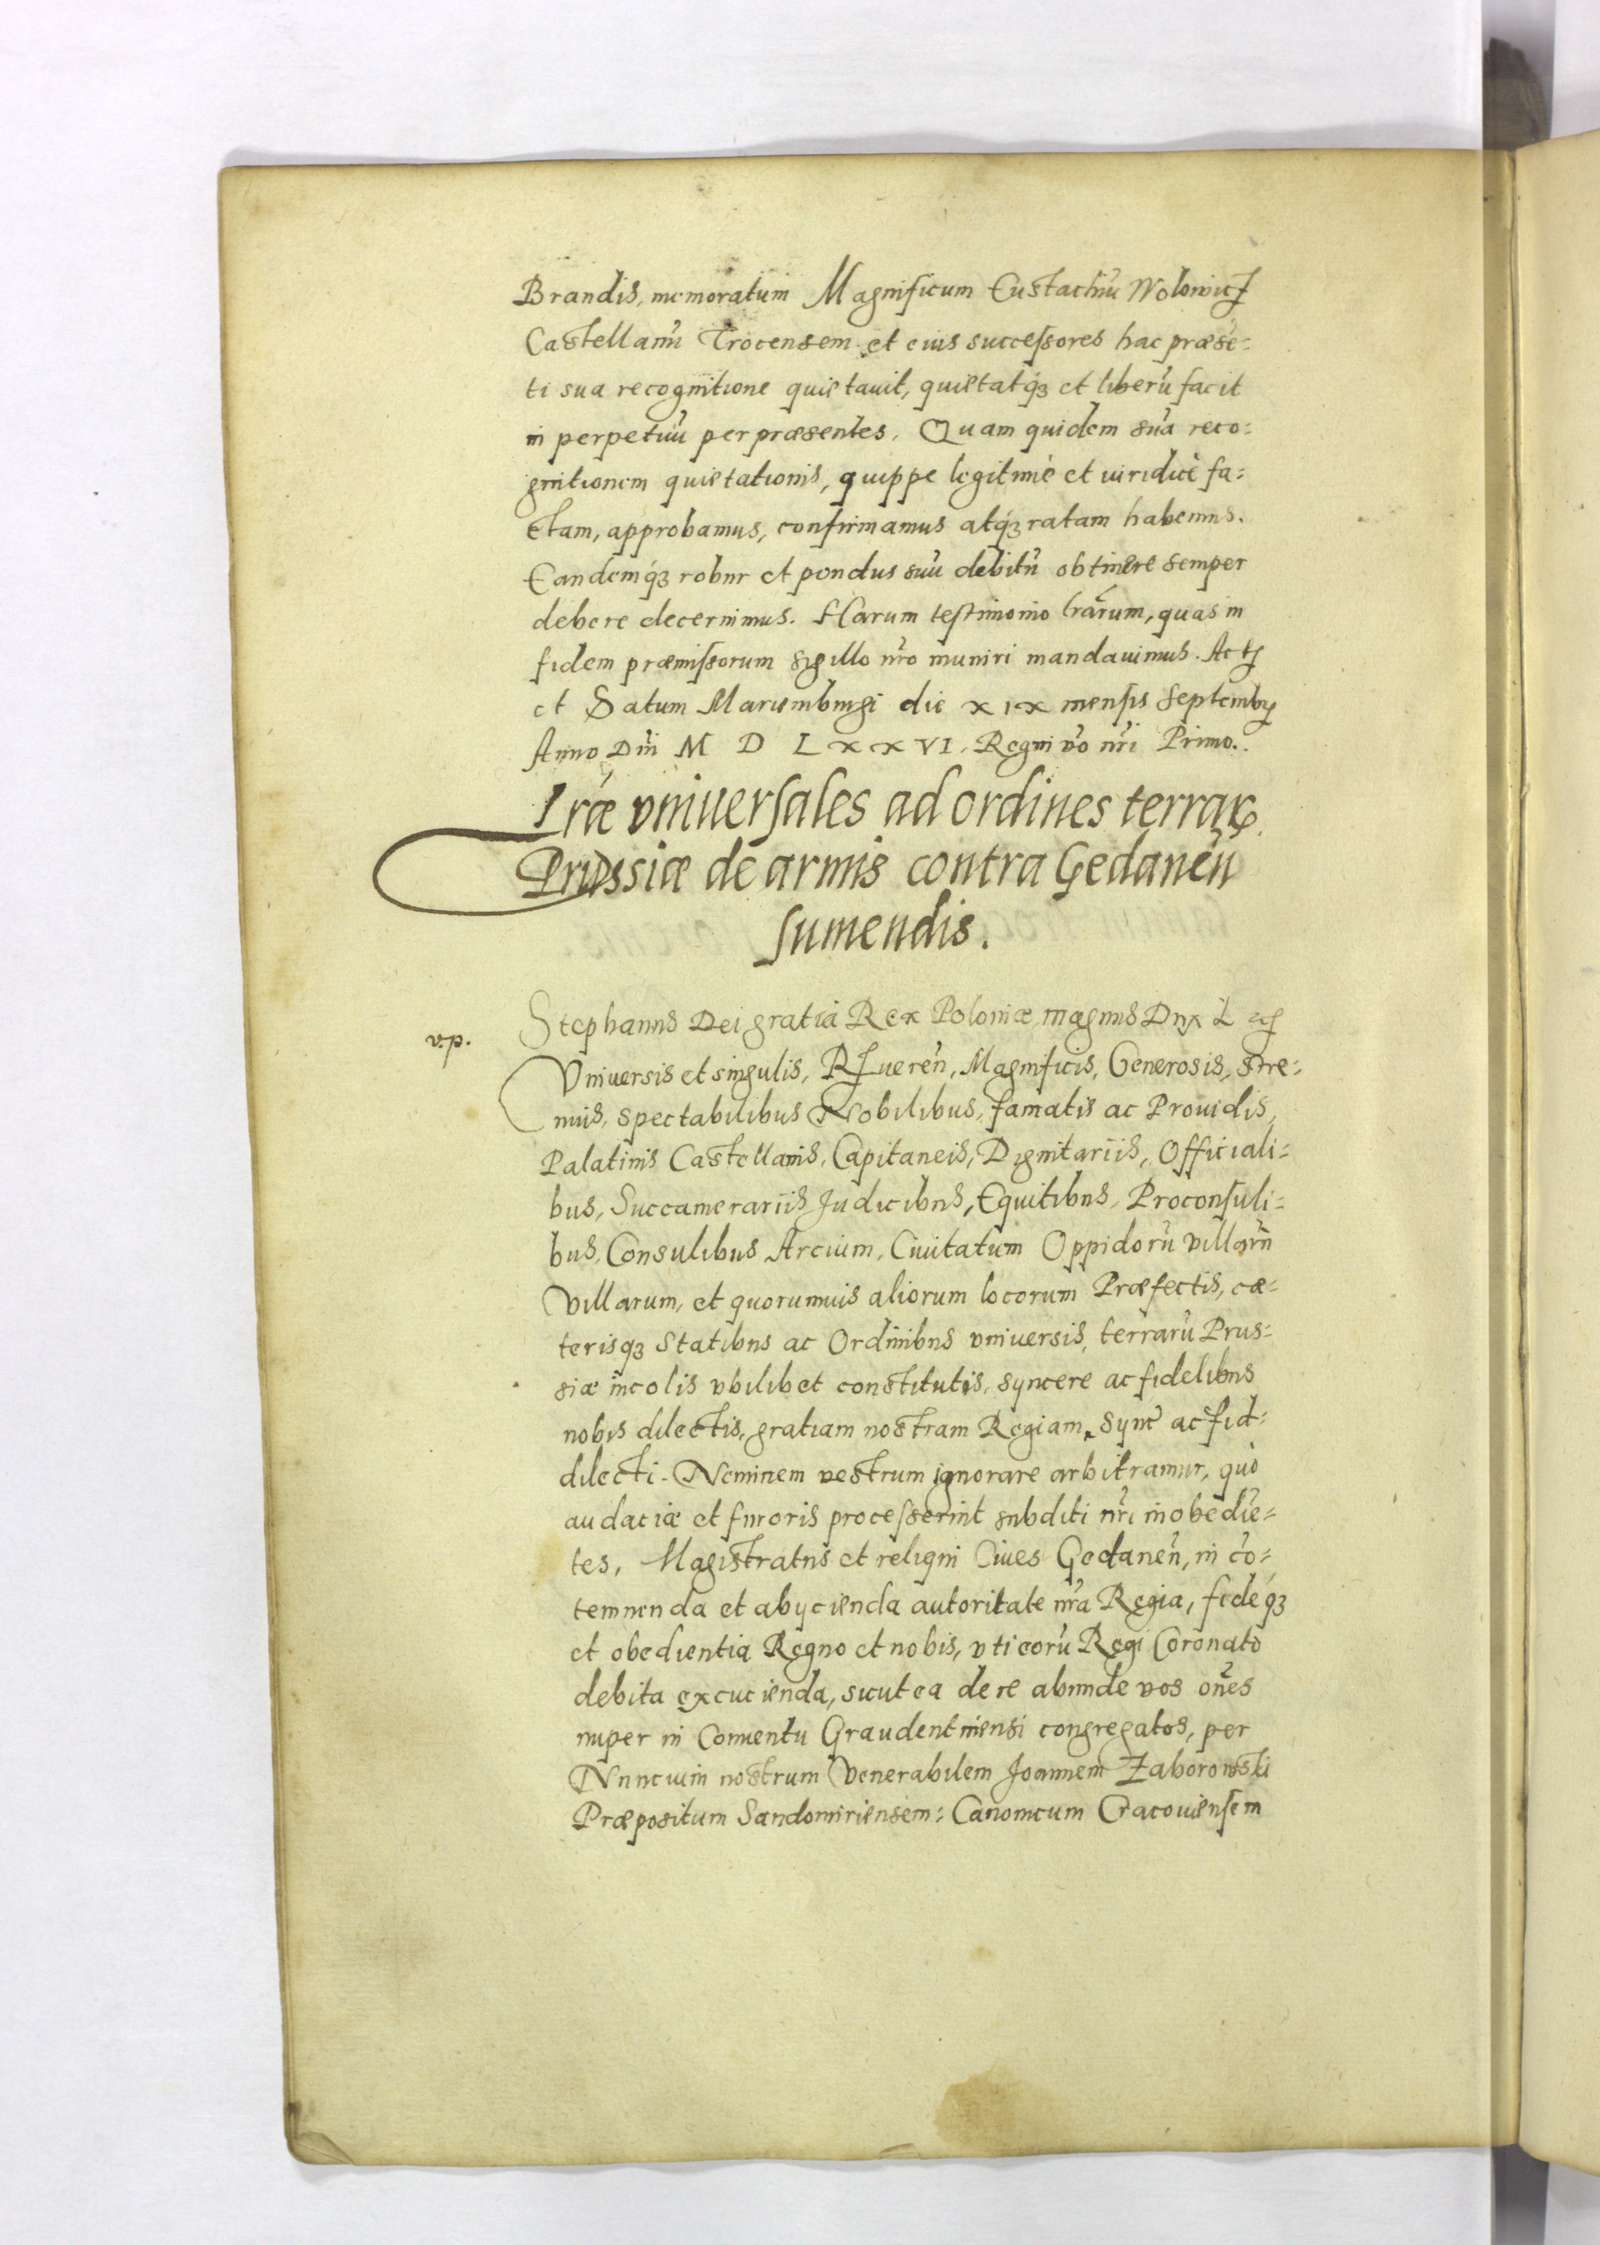 Brandis, memoratum Magnificum Eustachiū Wolowicz
Castellanū Trocensem et eius successores hac præsē-
ti sua recognitione quietauit, quietatq́ꝫ et liberū facit
in perpetuū per præsentes. Quam quidem suā reco-
gnitionem quietationis, quippe legitimè et iuridicè fa-
ctam, approbamus, confirmamus atq́ꝫ ratam habemus.
Eandemq́ꝫ robur et pondus suū debitū obtinere semper
debere decernimus. Harum testimonio lrārum, quas in
fidem præmissorum sigillo nrō muniri mandauimus. Actū
et Datum Mariemburgi die XIX mensis Septembrꝭ
Anno Dnī M D L X X VI. Regni vō nrī Primo.
Lræ vniuersales ad ordines terrarꝝ
Prussiæ de armis contra Gedanēn
sumendis.
v.p.
Stephanus Dei gratia Rex Poloniæ magnus Dux L etc
Vniuersis et singulis, Rꝫueren̄, Magnificis, Generosis, Stre-
nuis, spectabilibus Nobilibus, famatis ac Prouidis,
Palatinis Castellanis, Capitaneis, Dignitariis, Officiali-
bus, Succamerariis Judicibus, Equitibus, Proconsuli-
bus, Consulibus Arcium, Ciuitatum Oppidorū villarū
Villarum, et quorumuis aliorum locorum Præfectis, cæ-
terisqꝫ Statibus ac Ordinibus vniuersis, terrarū Prus-
siæ incolis vbilibet constitutis, syncere ac fidelibus
nobis dilectis, gratiam nostram Regiam. Sync̄ ac fid-
dilecti. Neminem vestrum ignorare arbitramur, quò
audaciæ et furoris processerint subditi nrī inobediē-
tes, Magistratus et reliqui Ciues Gedanen̄, in cō-
temnenda et abycienda autoritate nrā Regia, fidéq́ꝫ
et obedientia Regno et nobis, vti eorū Regi Coronato
debita excucienda, sicut ea de re abunde vos om̄es
nuper in Conuentu Graudentinensi congregatos, per
Nuncium nostrum Venerabilem Joannem Zaborowski
Præpositum Sandomiriensem: Canonicum Cracouiensem